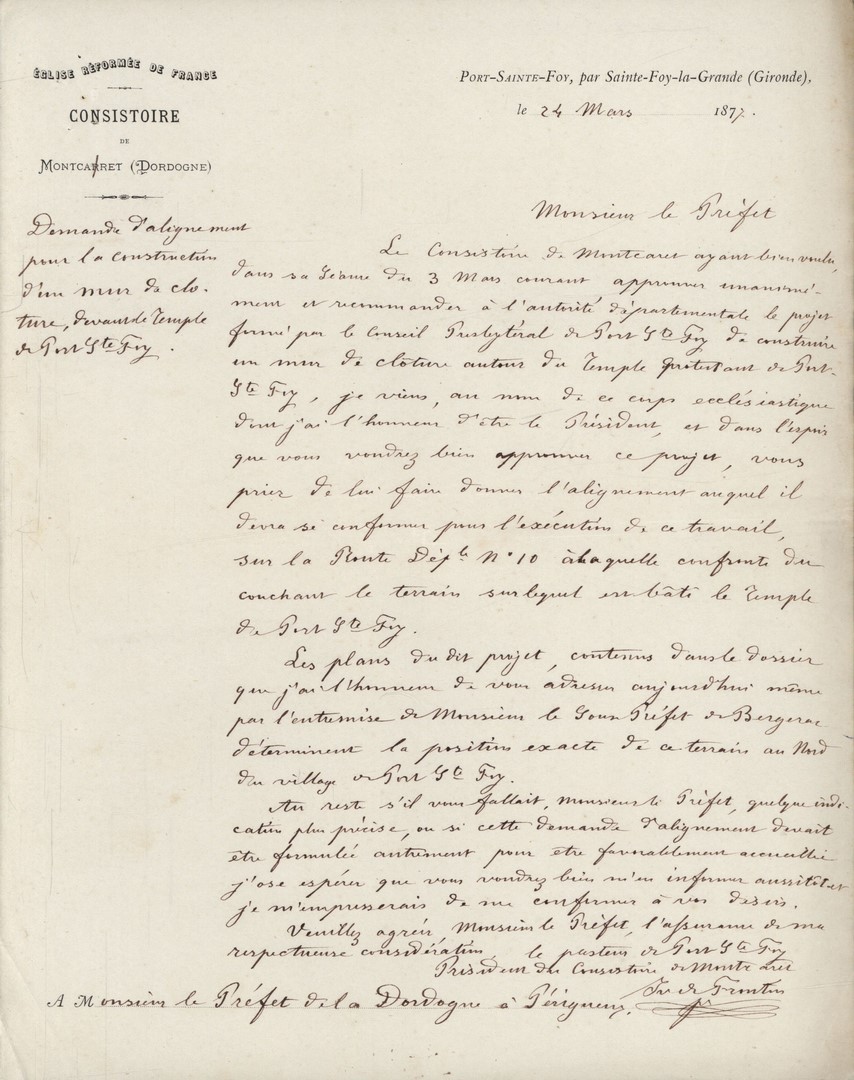 ÉGLISE RÉFORMÉE DE FRANCE
CONSISTOIRE
DE
MONTCARRET (DORDOGNE)
PORT-SAINTE-FOY, par Sainte-Foy-la-Grande (Gironde),
le 24 Mars 1877.
Demande d'alignement
pour la construction
d'un mur de clo-
ture, devant le Temple
de Port Ste Foy.
Monsieur le Préfet
Le Consistoire de Montcaret ayant bien voulu,
dans sa séance du 3 Mars courant approuver unanimé-
ment et recommander à l'autorité départementale le projet
formé par le Conseil Presbytéral de Port Ste Foy de construire
un mur de clôture autour du Temple protestant de Port-
Ste Foy, je viens, au nom de ce corps ecclésiastique
dont j'ai l'honneur d'être le Président, et dans l'espoir
que vous voudrez bien approuver ce projet, vous
prier de lui faire donner l'alignement auquel il
devra se conformer pour l'exécution de ce travail,
sur la Route Dép.le N° 10 à laquelle confronte du
couchant le terrain sur lequel est bâti le Temple
de Port Ste Foy.
Les plans du dit projet, contenus dans le dossier
que j'ai l'honneur de vous adresser aujourd'hui même
par l'entremise de Monsieur le Sous Préfet de Bergerac
déterminent la position exacte de ce terrain au Nord
du village de Port Ste Foy.
Au reste s'il vous fallait, Monsieur le Préfet, quelque indi-
cation plus précise, ou si cette demande d'alignement devait
être formulée autrement pour être favorablement accueillie
j'ose espérer que vous voudrez bien m'en informer aussitôt et
je m'empresserais de me conformer à vos désirs.
Veuillez agréer, Monsieur le Préfet, l'assurance de ma
respectueuse considération
le pasteur de Port Ste Foy
Président du Consistoire de Montcaret
A Monsieur le Préfet de la Dordogne à Périgueux.